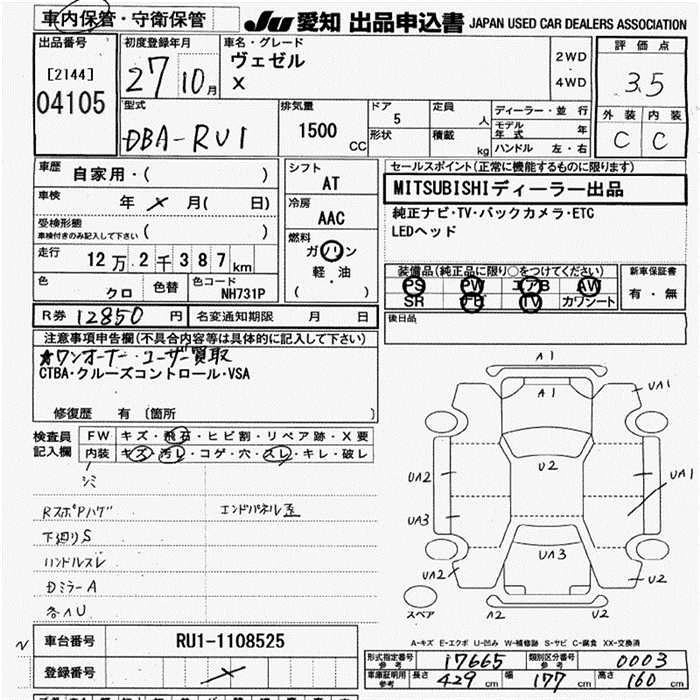 車内保管・守衛保管
JU 愛知 出品申込書 JAPAN USED CAR DEALERS ASSOCIATION
出品番号
[2144]
04105
初度登録年月
27 10月
車名・グレード
ヴェゼル
X
2WD
4WD
評価点
3.5
外装 内装
C C
型式
DBA-RU1
排気量
1500
CC
ドア
5
形状
定員
人
積載
kg
ディーラー・並行
モデル年式 年
ハンドル 左・右
車歴
自家用・( )
車検
年 月( 日)
受検形態
車検付きのみ記入して下さい ( )
走行
12万2千387km
色
クロ
色替
色コード
NH731P
シフト
AT
冷房
AAC
燃料
ガソリン
軽・油
( )
セールスポイント(正常に機能するものに限ります)
MITSUBISHIディーラー出品
純正ナビ・TV・バックカメラ・ETC
LEDヘッド
装備品(純正品に限り○をつけてください)
PS PW エアB AW
SR ナビ TV カワシート
新車保証書
有・無
後日品
R券 12850 円
名変通知期限 月 日
注意事項申告欄(不具合内容等は具体的に記入して下さい)
★ワンオーナー・ユーザー買取
CTBA・クルーズコントロール・VSA
修復歴 有 〔箇所 〕
検査員
記入欄
FW キズ・飛石・ヒビ割・リペア跡・X要
内装 キズ・汚レ・コゲ・穴・スレ・キレ・破レ
シミ
RスポPハゲ
エンドパネル歪
下廻りS
ハンドルスレ
Dミラー A
各ヘU
A1
A1
UA1
U2
UA2
UA1
UA3
UA3
UA2
U2
スペア
A2
U2
A-キズ E-エクボ U-凹み W-補修跡 S-サビ C-腐食 XX-交換済
車台番号
RU1-1108525
登録番号
形式指定番号
参考
17665
類別区分番号
参考
0003
車庫証明用
参考
長さ 429 cm
幅 177 cm
高さ 160 cm